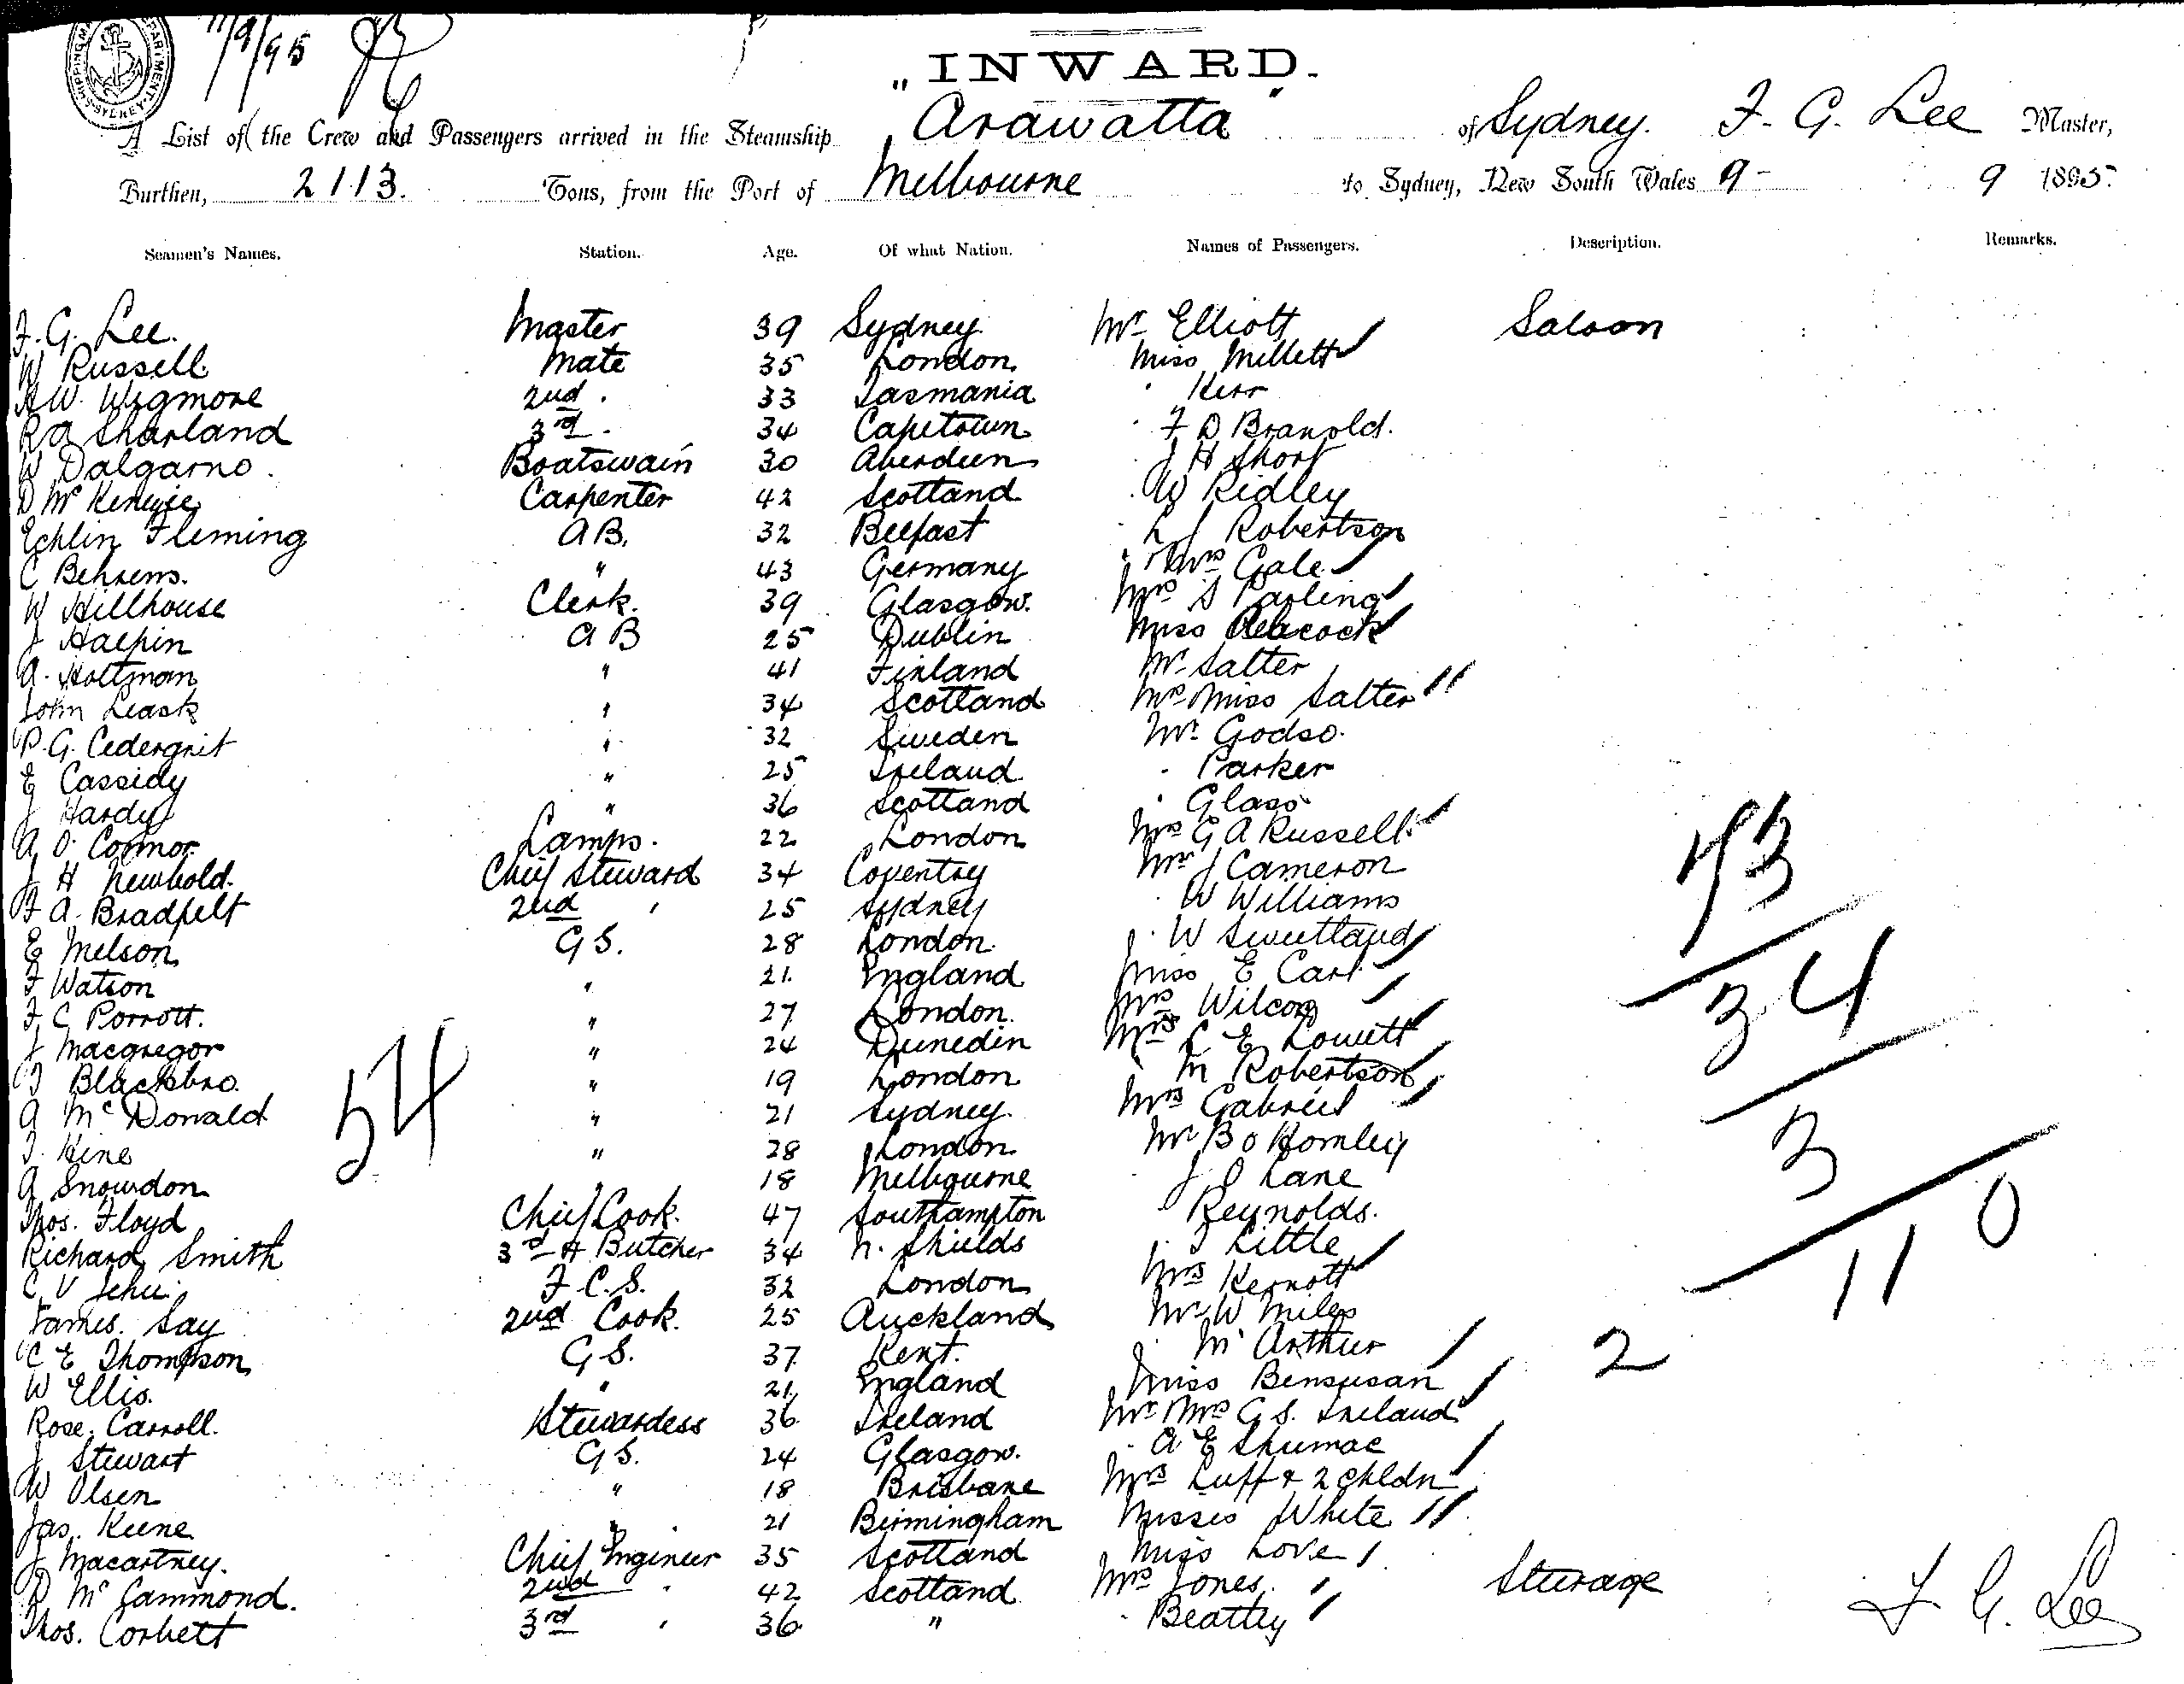 11/9/95
INWARD.
A List of the Crew and Passengers arrived in the Steamship "Arawatta" of Sydney. F. G. Lee Master,
Burthen, 2113. Tons, from the Port of Melbourne to Sydney, New South Wales 9 - 9 1895.
Seamen's Names. Station. Age. Of what Nation. Names of Passengers. Description. Remarks.
F. G. Lee. Master 39 Sydney Mr Elliott Saloon
W Russell Mate 35 London Miss Millett
A W. Wigmore 2nd " 33 Tasmania " Kerr
R A Sharland 3rd " 34 Capetown " F D Branold.
W Dalgarno. Boatswain 30 Aberdeen " J H Short
D McKenzie Carpenter 42 Scotland " W Ridley
Echlin Fleming A B. 32 Belfast " L J Robertson
C Behrens. " 43 Germany " Mrs Gale
W Hillhouse Clerk. 39 Glasgow. Mrs S Parling
J Halpin A B 25 Dublin Miss Peacock
A. Holtman " 41 Finland Mr Salter
John Leask " 34 Scotland Mrs Miss Salter
P. G. Cedergrit " 32 Sweden Mr Godso.
E Cassidy " 25 Ireland " Parker
J Hardy " 36 Scotland " Glass
A O'Connor Lamps. 22 London Mrs G A Russell
J H Newbold. Chief Steward 34 Coventry Mr J Cameron
F A. Bradfelt 2nd " 25 Sydney " W Williams
E Melson G S. 28 London " W Sweetland
F Watson " 21. England Miss E Carl
F C Porrott. " 27 London. Mrs Wilcox
J Macgregor " 24 Dunedin Mrs L E Lowett
J Blackbro. " 19 London " M Robertson
A McDonald " 21 Sydney. Mrs Gabriel
J. Hine " 28 London Mr B O Homley
A Snowdon " 18 Melbourne " J O Lane
Thos. Floyd Chief Cook. 47 Southampton " Reynolds.
Richard Smith 3rd & Butcher 34 N. Shields " J Little
C V Jehu F. C. S. 32 London Mrs Kernott
James. Say 2nd Cook. 25 Auckland Mr W Miles
C E Thompson G S. 37 Kent. " McArthur
W Ellis. " 21 England Miss Bensusan
Rose Carroll. Stewardess 36 Ireland Mr Mrs G S. Ireland
J Stewart G S. 24 Glasgow. " A E Shumac
W Olsen " 18 Brisbane Mrs Luff & 2 chldn
Jas. Keene " 21 Birmingham Misses White
J Macartney. Chief Engineer 35 Scotland Miss Love
D McGammond. 2nd " 42 Scotland Mrs Jones. Steerage
Thos. Corbett 3rd " 36 " " Beattey
54
73
34
3
110
2
F G. Lee